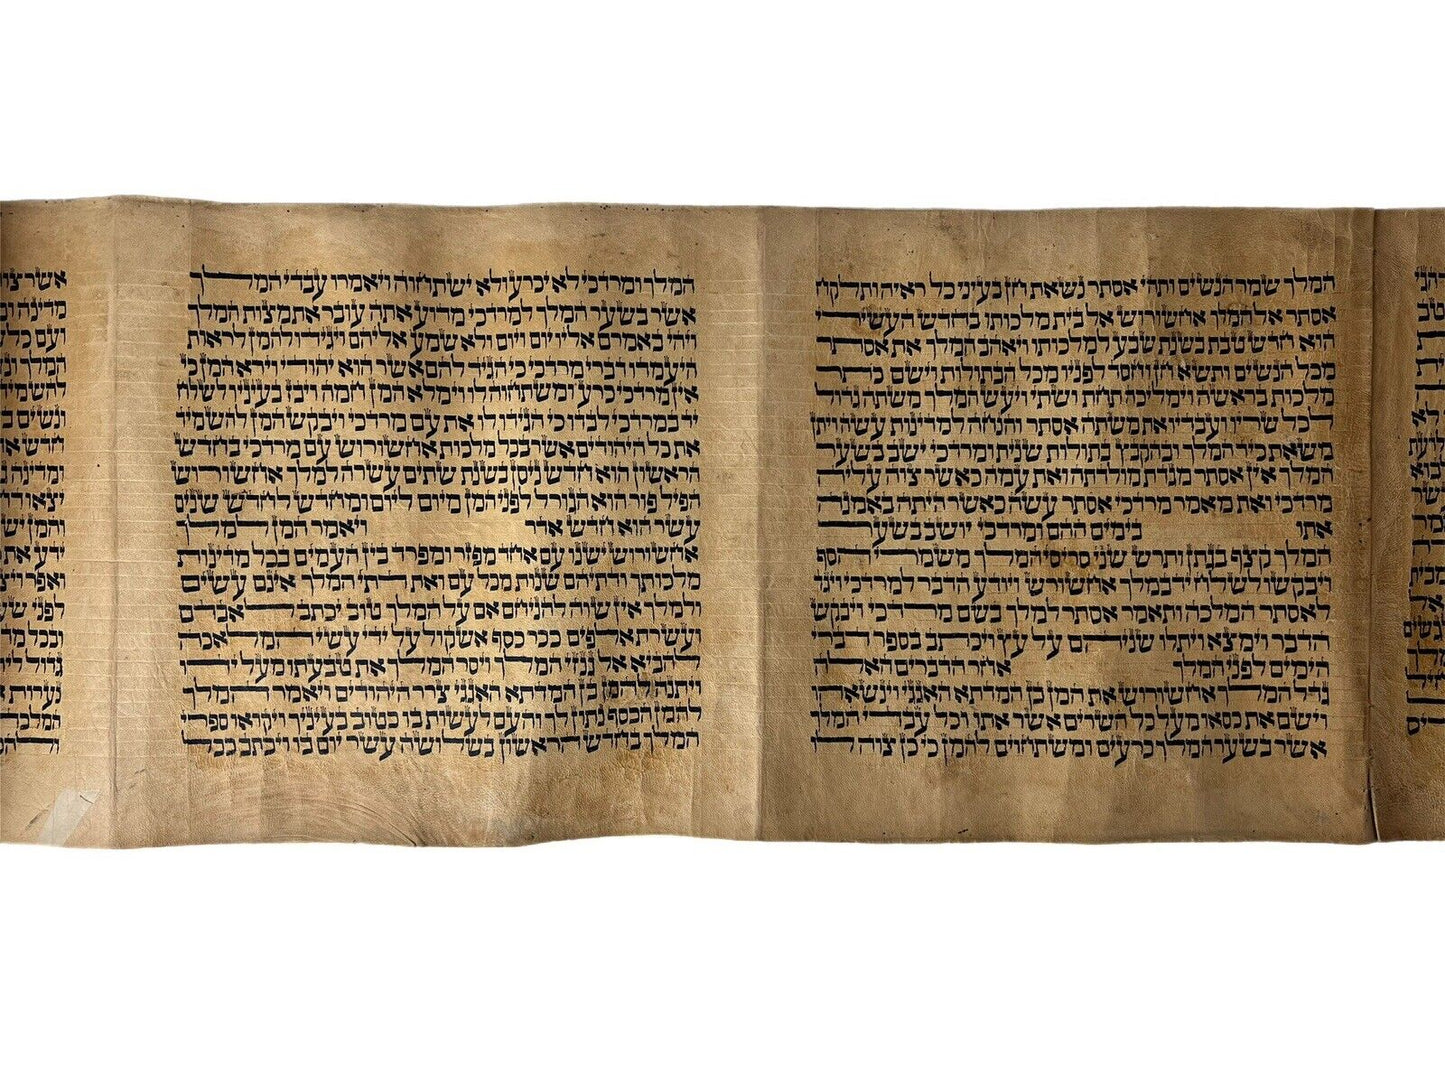 המלך שמר הנשים ותהי אסתר נשאת חן בעיני כל ראיה ותלקח
אסתר אל המלך אחשורוש אל בית מלכותו בחדש העשירי
הוא חדש טבת בשנת שבע למלכותו ויאהב המלך את אסתר
מכל הנשים ותשא חן וחסד לפניו מכל הבתולות וישם כתר
מלכות בראשה וימליכה תחת ושתי ויעש המלך משתה גדול
לכל שריו ועבדיו את משתה אסתר והנחה למדינות עשה ויתן
משאת כיד המלך ובהקבץ בתולות שנית ומרדכי ישב בשער
המלך אין אסתר מגדת מולדתה ואת עמה כאשר צוה עליה
מרדכי ואת מאמר מרדכי אסתר עשה כאשר היתה באמנה
אתו בימים ההם ומרדכי יושב בשער
המלך קצף בגתן ותרש שני סריסי המלך משמרי הסף
ויבקשו לשלח יד במלך אחשורוש ויודע הדבר למרדכי ויגד
לאסתר המלכה ותאמר אסתר למלך בשם מרדכי ויבקש
הדבר וימצא ויתלו שניהם על עץ ויכתב בספר דברי
הימים לפני המלך אחר הדברים האלה
גדל המלך אחשורוש את המן בן המדתא האגגי וינשאהו
וישם את כסאו מעל כל השרים אשר אתו וכל עבדי המלך
אשר בשער המלך כרעים ומשתחוים להמן כי כן צוה לו
המלך ומרדכי לא יכרע ולא ישתחוה ויאמרו עבדי המלך
אשר בשער המלך למרדכי מדוע אתה עובר את מצות המלך
ויהי באמרם אליו יום ויום ולא שמע אליהם ויגידו להמן לראות
היעמדו דברי מרדכי כי הגיד להם אשר הוא יהודי וירא המן כי
אין מרדכי כרע ומשתחוה לו וימלא המן חמה ויבז בעיניו לשלח
יד במרדכי לבדו כי הגידו לו את עם מרדכי ויבקש המן להשמיד
את כל היהודים אשר בכל מלכות אחשורוש עם מרדכי בחדש
הראשון הוא חדש ניסן בשנת שתים עשרה למלך אחשורוש
הפיל פור הוא הגורל לפני המן מיום ליום ומחדש לחדש שנים
עשר הוא חדש אדר ויאמר המן למלך
אחשורוש ישנו עם אחד מפזר ומפרד בין העמים בכל מדינות
מלכותך ודתיהם שנות מכל עם ואת דתי המלך אינם עשים
ולמלך אין שוה להניחם אם על המלך טוב יכתב לאבדם
ועשרת אלפים ככר כסף אשקול על ידי עשי המלאכה
להביא אל גנזי המלך ויסר המלך את טבעתו מעל ידו
ויתנה להמן בן המדתא האגגי צרר היהודים ויאמר המלך
להמן הכסף נתון לך והעם לעשות בו כטוב בעיניך ויקראו ספרי
המלך בחדש הראשון בשלושה עשר יום בו ויכתב ככל
אשר
מדינה
ועם כל
המלך
נשים
חדש
מדינה
יצאו
והמן
ידע
לפני
ובכל
גדול
נערות